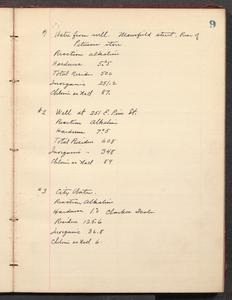 9
#1 Water from well. Mansfield street. Rear of
Peterson store
Reaction alkaline
Hardness 5.5
Total Residue 500
Inorganic 251.2
Chlorin as NaCl 87.
#2 Well at 251 E. Pine St.
Reaction Alkalin
Hardness 7.5
Total Residue 608
Inorganic " 348
Chlorin as NaCl 89
#3 City Water.
Reaction Alkaline
Hardness 1.2 Clarkes Scale
Residue 125.6
Inorganic 36.8
Chlorin as NaCl 6.